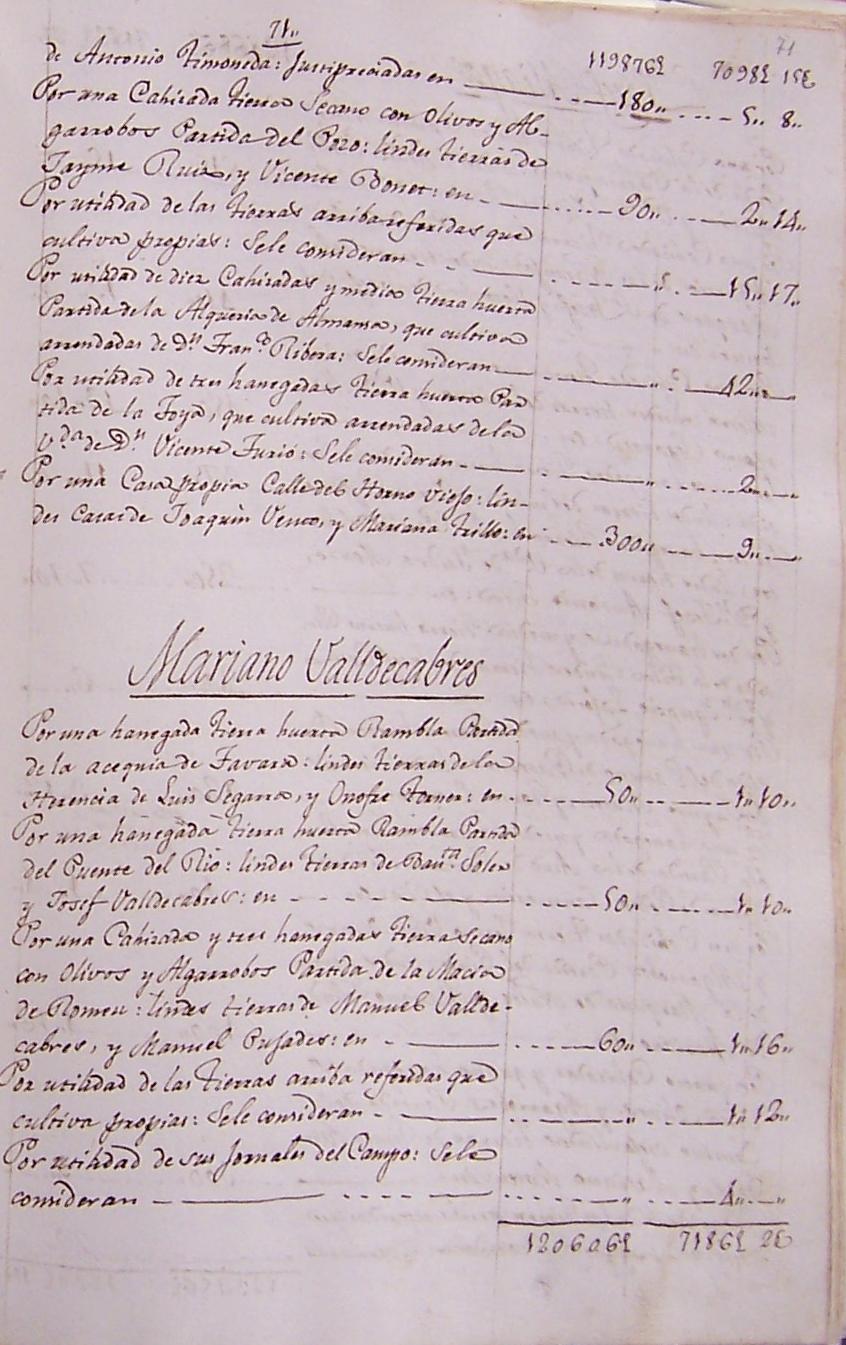 71„
71
119876£ 7098£ 13$
de Antonio Timoneda: Justipreciadas en ——— ---180„ ---- 5„ 8„
Por una Cahizada tierra Secano con Olivos y Al-
garrobos Partida del Pozo: lindes tierras de
Jayme Ruiz, y Vicente Bonet: en - ——— 90„ ---- 2„ 14„
Por utilidad de las tierras arriba referidas que
cultiva propias: Sele consideran - - ——— „ --- 15„ 17„
Por utilidad de diez Cahizadas y media tierra huerta
Partida de la Alqueria de Almansa, que cultiva
arrendadas de Dn. Franco. Ribera: Sele consideran ——— „ - 42„ —„
Por utilidad de tres hanegadas tierra huerta Par
tida de la Foya, que cultiva arrendadas de la
Vda. de Dn. Vicente Furió: Sele consideran - ——— „ --- 2„ —„
Por una Casa propia Calle del Horno viejo: lin-
des Casas de Joaquin Vento, y Mariana Trillo: en --- 300„ --- 9„ —„
Mariano Valldecabres
Por una hanegada tierra huerta Rambla Partida
de la acequia de Favara: lindes tierras de la
Herencia de Luis Segarra, y Onofre Forner: en - ----- 50„ --- 1„ 10„
Por una hanegada tierra huerta Rambla Partida
del Puente del Rio: lindes tierras de Bauta. Soler
y Josef Valldecabres: en - - - - ——— ----- 50„ ---- 1„ 10„
Por una Cahizada y tres hanegadas tierra secano
con Olivos y Algarrobos Partida de la Macia
de Romeu: lindes tierras de Manuel Vallde-
cabres, y Manuel Pujades: en - ——— ----- 60„ ---- 1„ 16„
Por utilidad de las tierras arriba referidas que
cultiva propias: Sele consideran - ——— ----- „ --- 1„ 12„
Por utilidad de sus Jornales del Campo: Sele
consideran — ——— ---- ——— ----- „ ---- 4„ —„
120606£ 7186£ 2$